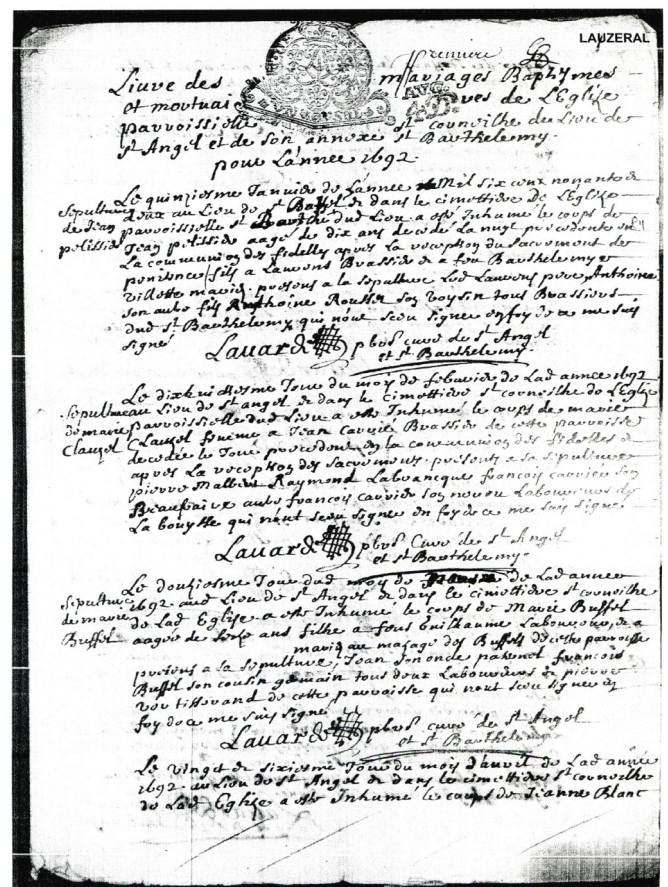 LAUZERAL
Premiere
Liuve des mariages Baptymes
et mortuaires de L'Eglize
parroissielle st corneilhe du Lieu de
st Angel et de son annexe st Barthelemy.
pour L'annee 1692
Le quinziesme Januier de L'annee Mil six cens nonante
Sepulture deux au Lieu de st de dans le cimettiere de L'Eglize
de Jean parroissielle st dud Lieu a esté Inhumé le corps de
pelissié Jean pelissié aagé de dix ans decedé La nuit precedente en
La communion des fidelles apres la reception du sacrement de
penitence fils a Laurens Brassier & a feu Barthelemye
Villotte mariés. presens a la sepulture Led Laurens pere, Anthoine
son autre fils Anthoine son voysin tous Brassiers
dud st Barthelemy qui n'ont sceu signer en foy de ce me suis
signé
Lauard pbre curé de st Angel
et st Barthelemy.
Le dixhuictiesme Jour du moy de febuvier de Lad annee 1692
Sepulture au Lieu de st angel & dans le cimettiere st corneilhe de L'Eglize
de marie parroissielle dud Lieu a esté Inhumé le corps de marie
Clauzel Clauzel femme a Jean Carrié Brassier de cette parroisse
decedée le Jour precedent en la communion des fidelles &
apres La reception des sacremens. presens a sa sepulture
pierre Malbert Raymond Labrancque françois carrié son
Beaufraire autre françois carrier son nevou Laboureurs de
La bouysse qui n'ont sceu signer en foy de ce me suis signé
Lauard pbre Curé de st Angel
et st Barthelemy.
Le douziesme Jour dud moy de de Lad annee
Sepulture 1692 aud Lieu de st Angel & dans le cimettiere st corneilhe
de marie de Lad Eglize a esté Inhumé le corps de Marie Buffel
Buffel aagée de ans filhe a feus Guilhaume Laboureur, & a
mariés au masage des Buffels de cette parroisse
presens a sa sepulture, Jean son oncle paternel françois
Buffel son cousin germain tous deux Laboureurs & pierre
tisserand de cette parroisse qui n'ont sceu signer en
foy de ce me suis signé
Lauard pbre curé de st Angel
et st Barthelemy
Le vingt & sixiesme Jour du moy d'auril de Lad année
1692 au Lieu de st Angel & dans le cimettiere st corneilhe
de Lad Eglize a esté Inhumé le corps de Jeanne Blanc